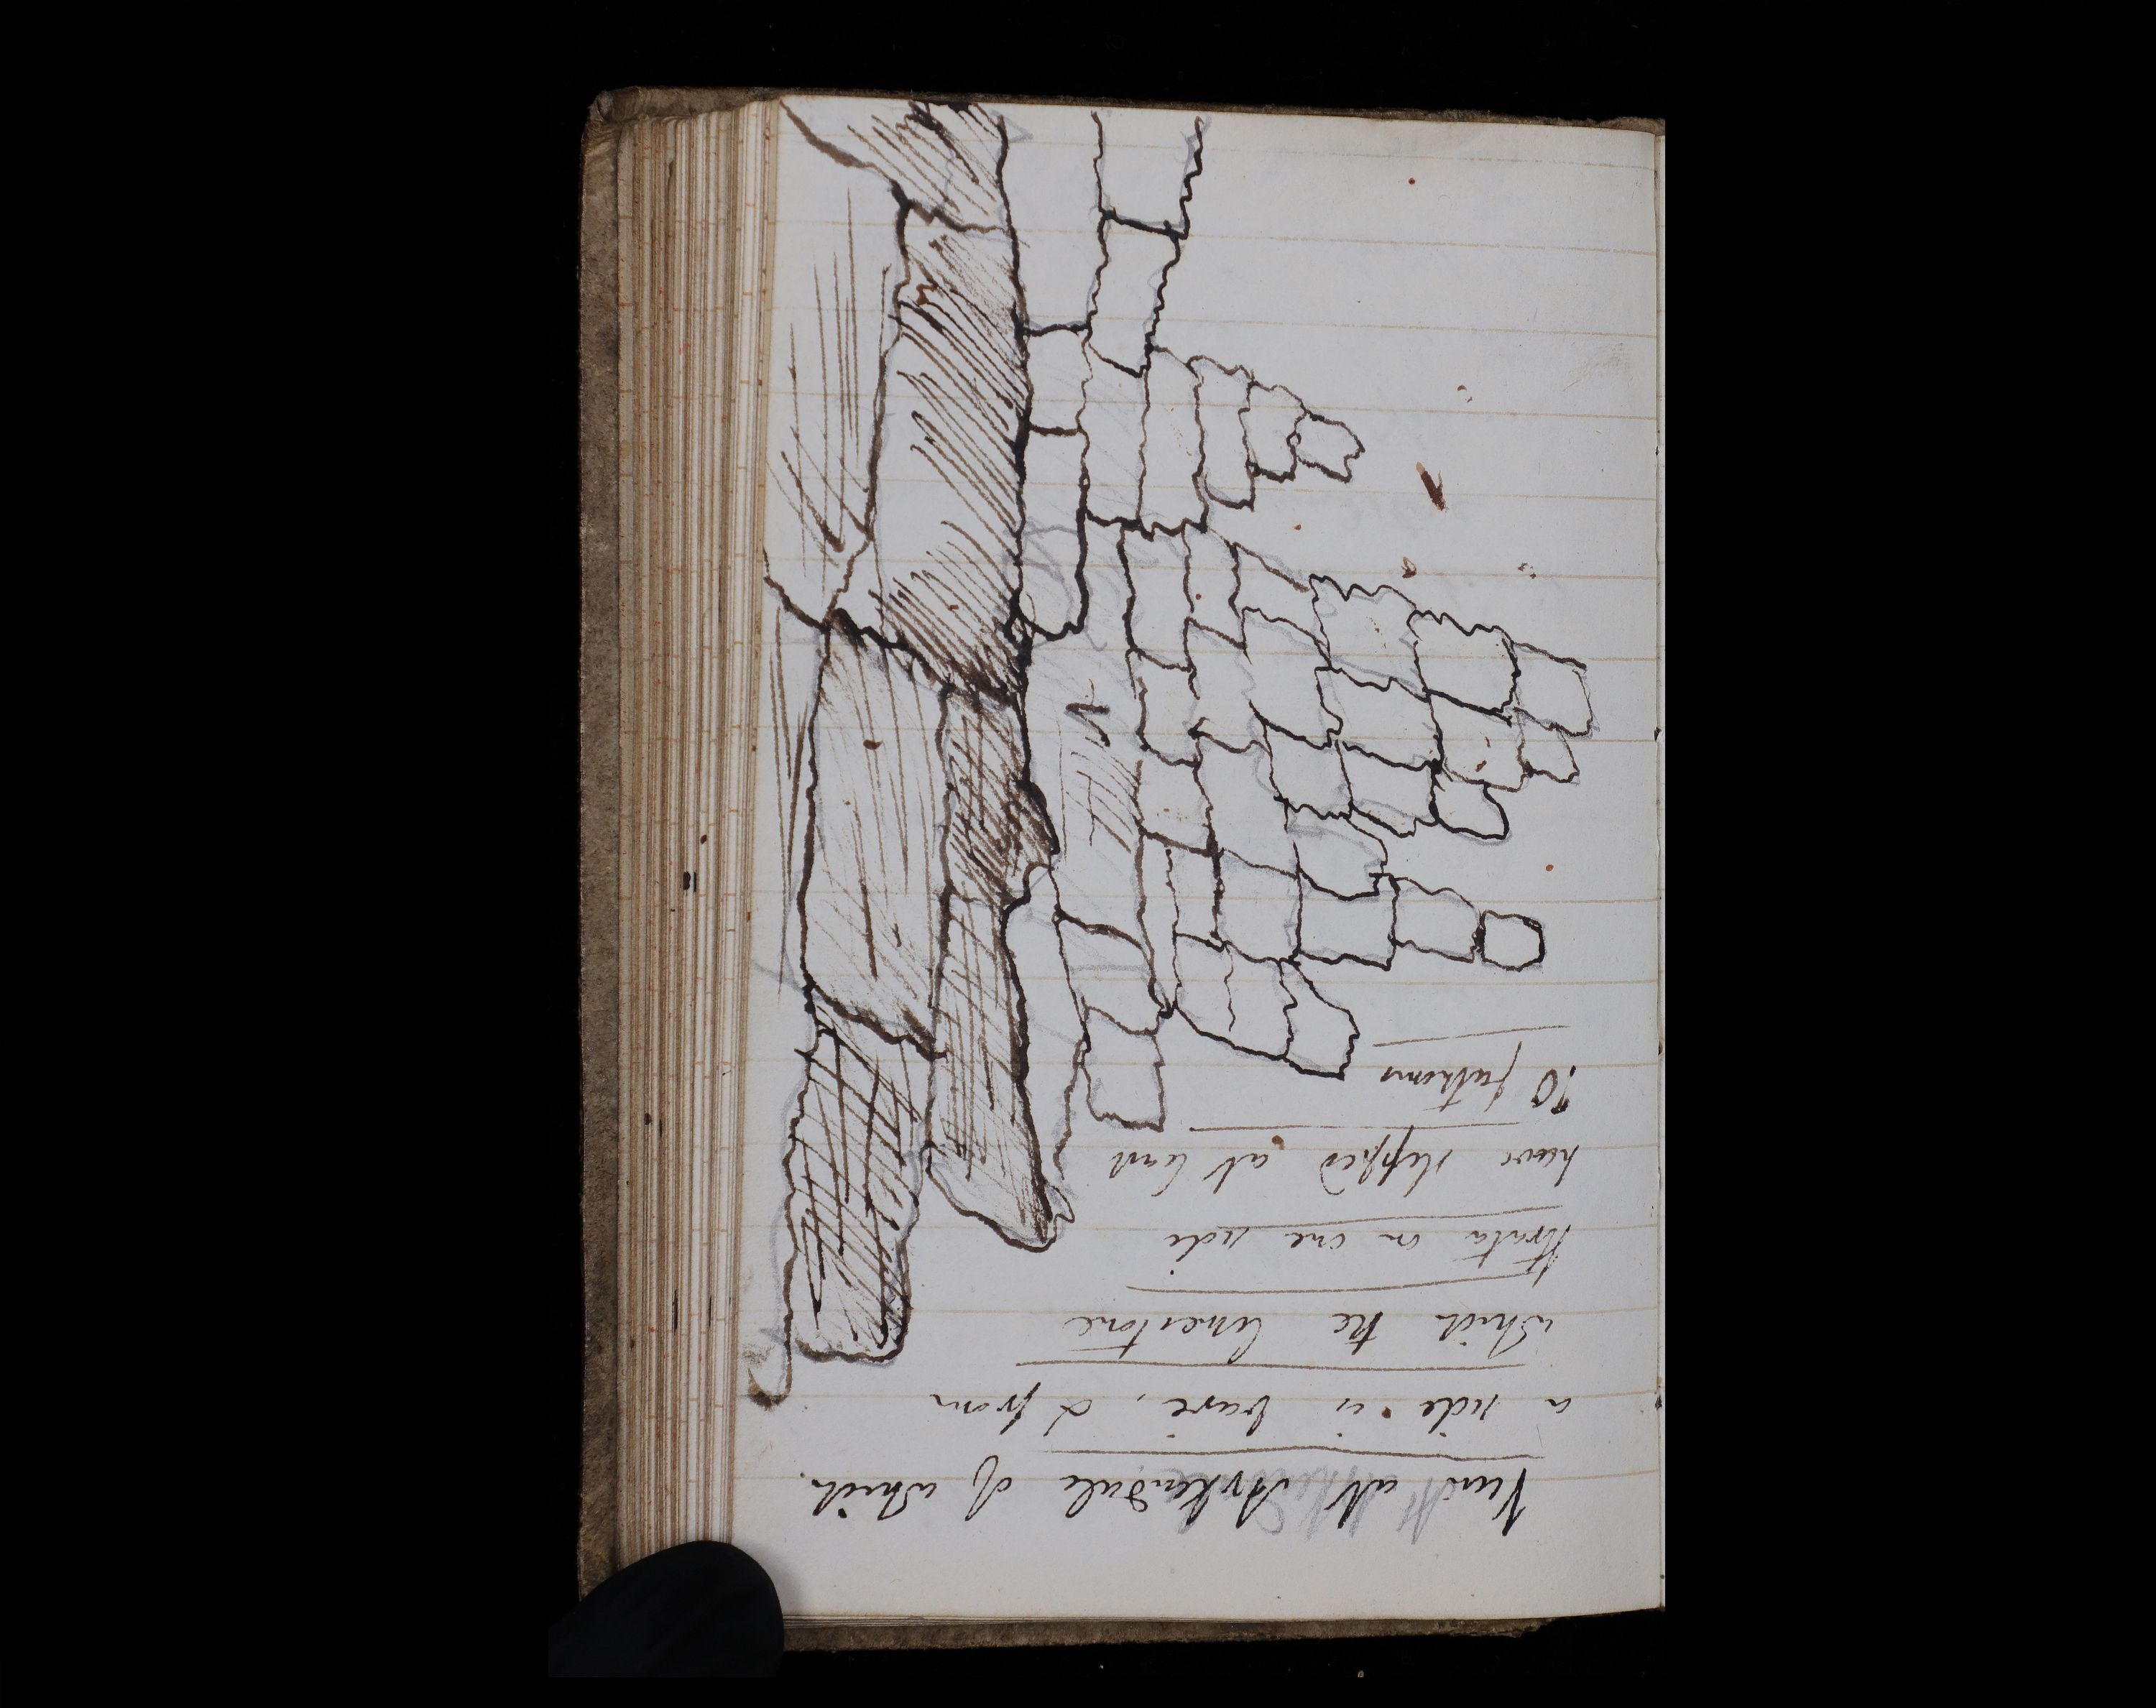 Vein at Arkendale of which
a side is bare, & from
which the limestone
strata on one side
have slipped at least
10 fathoms